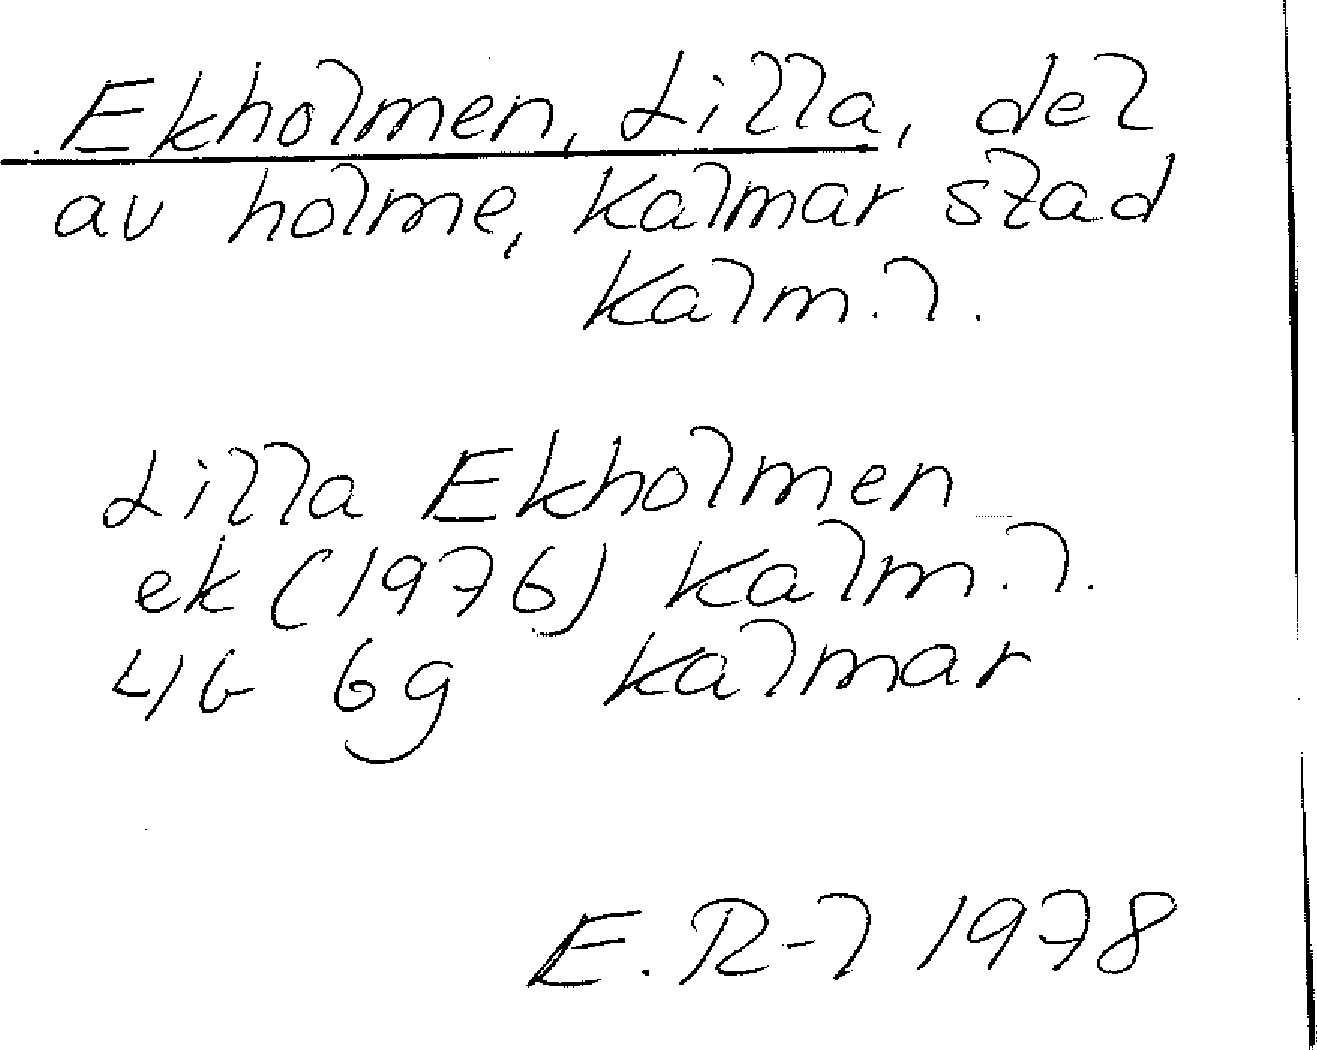 Ekholmen, Lilla, del
av holme, Kalmar stad
Kalm.l.
Lilla Ekholmen
ek (1976) Kalm.l.
4G 6g Kalmar
E. R-l 1978